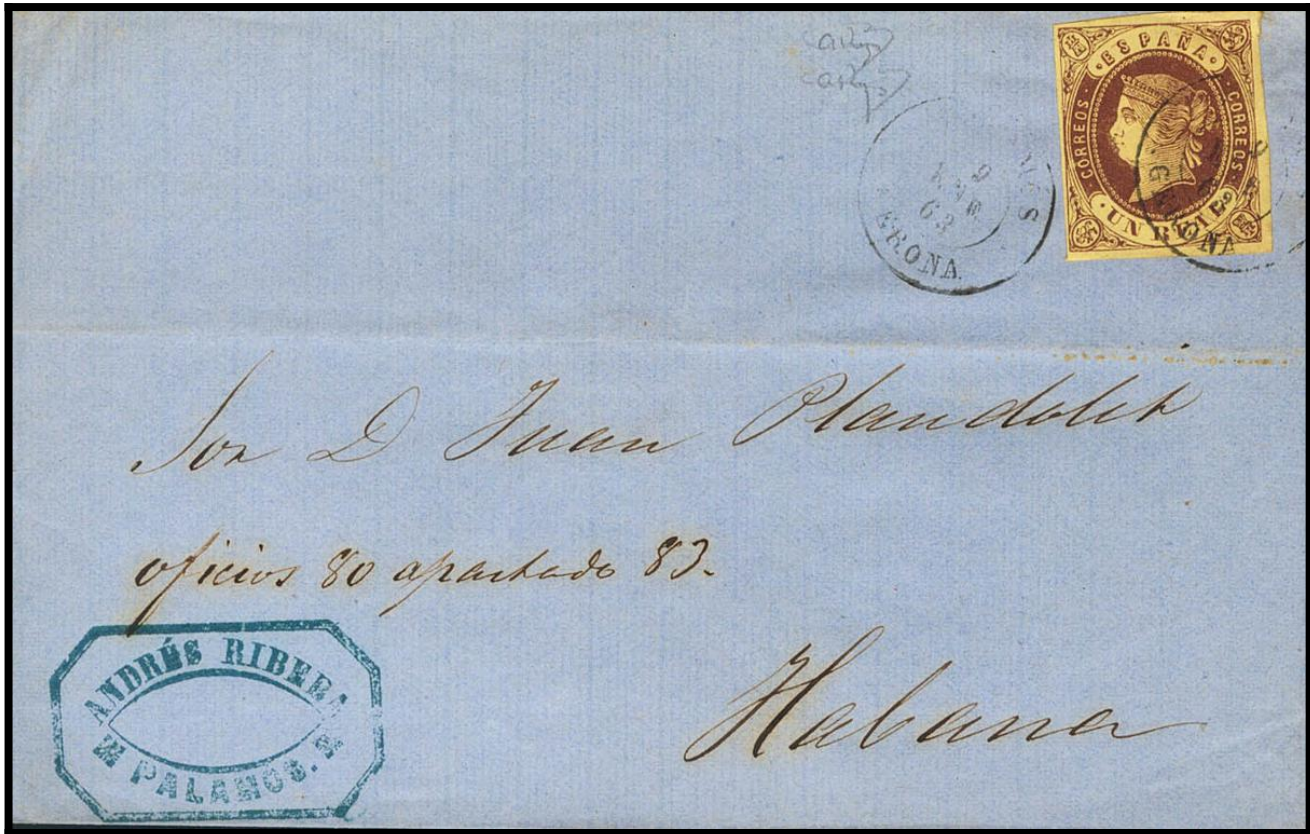 ESPAÑA
CORREOS
CORREOS
UN REAL
9
ENE
63
GERONA
ERONA
Sor D Juan Plandolit
oficios 80 apartado 83.
Habana
ANDRÉS RIBERA
PALAMOS.